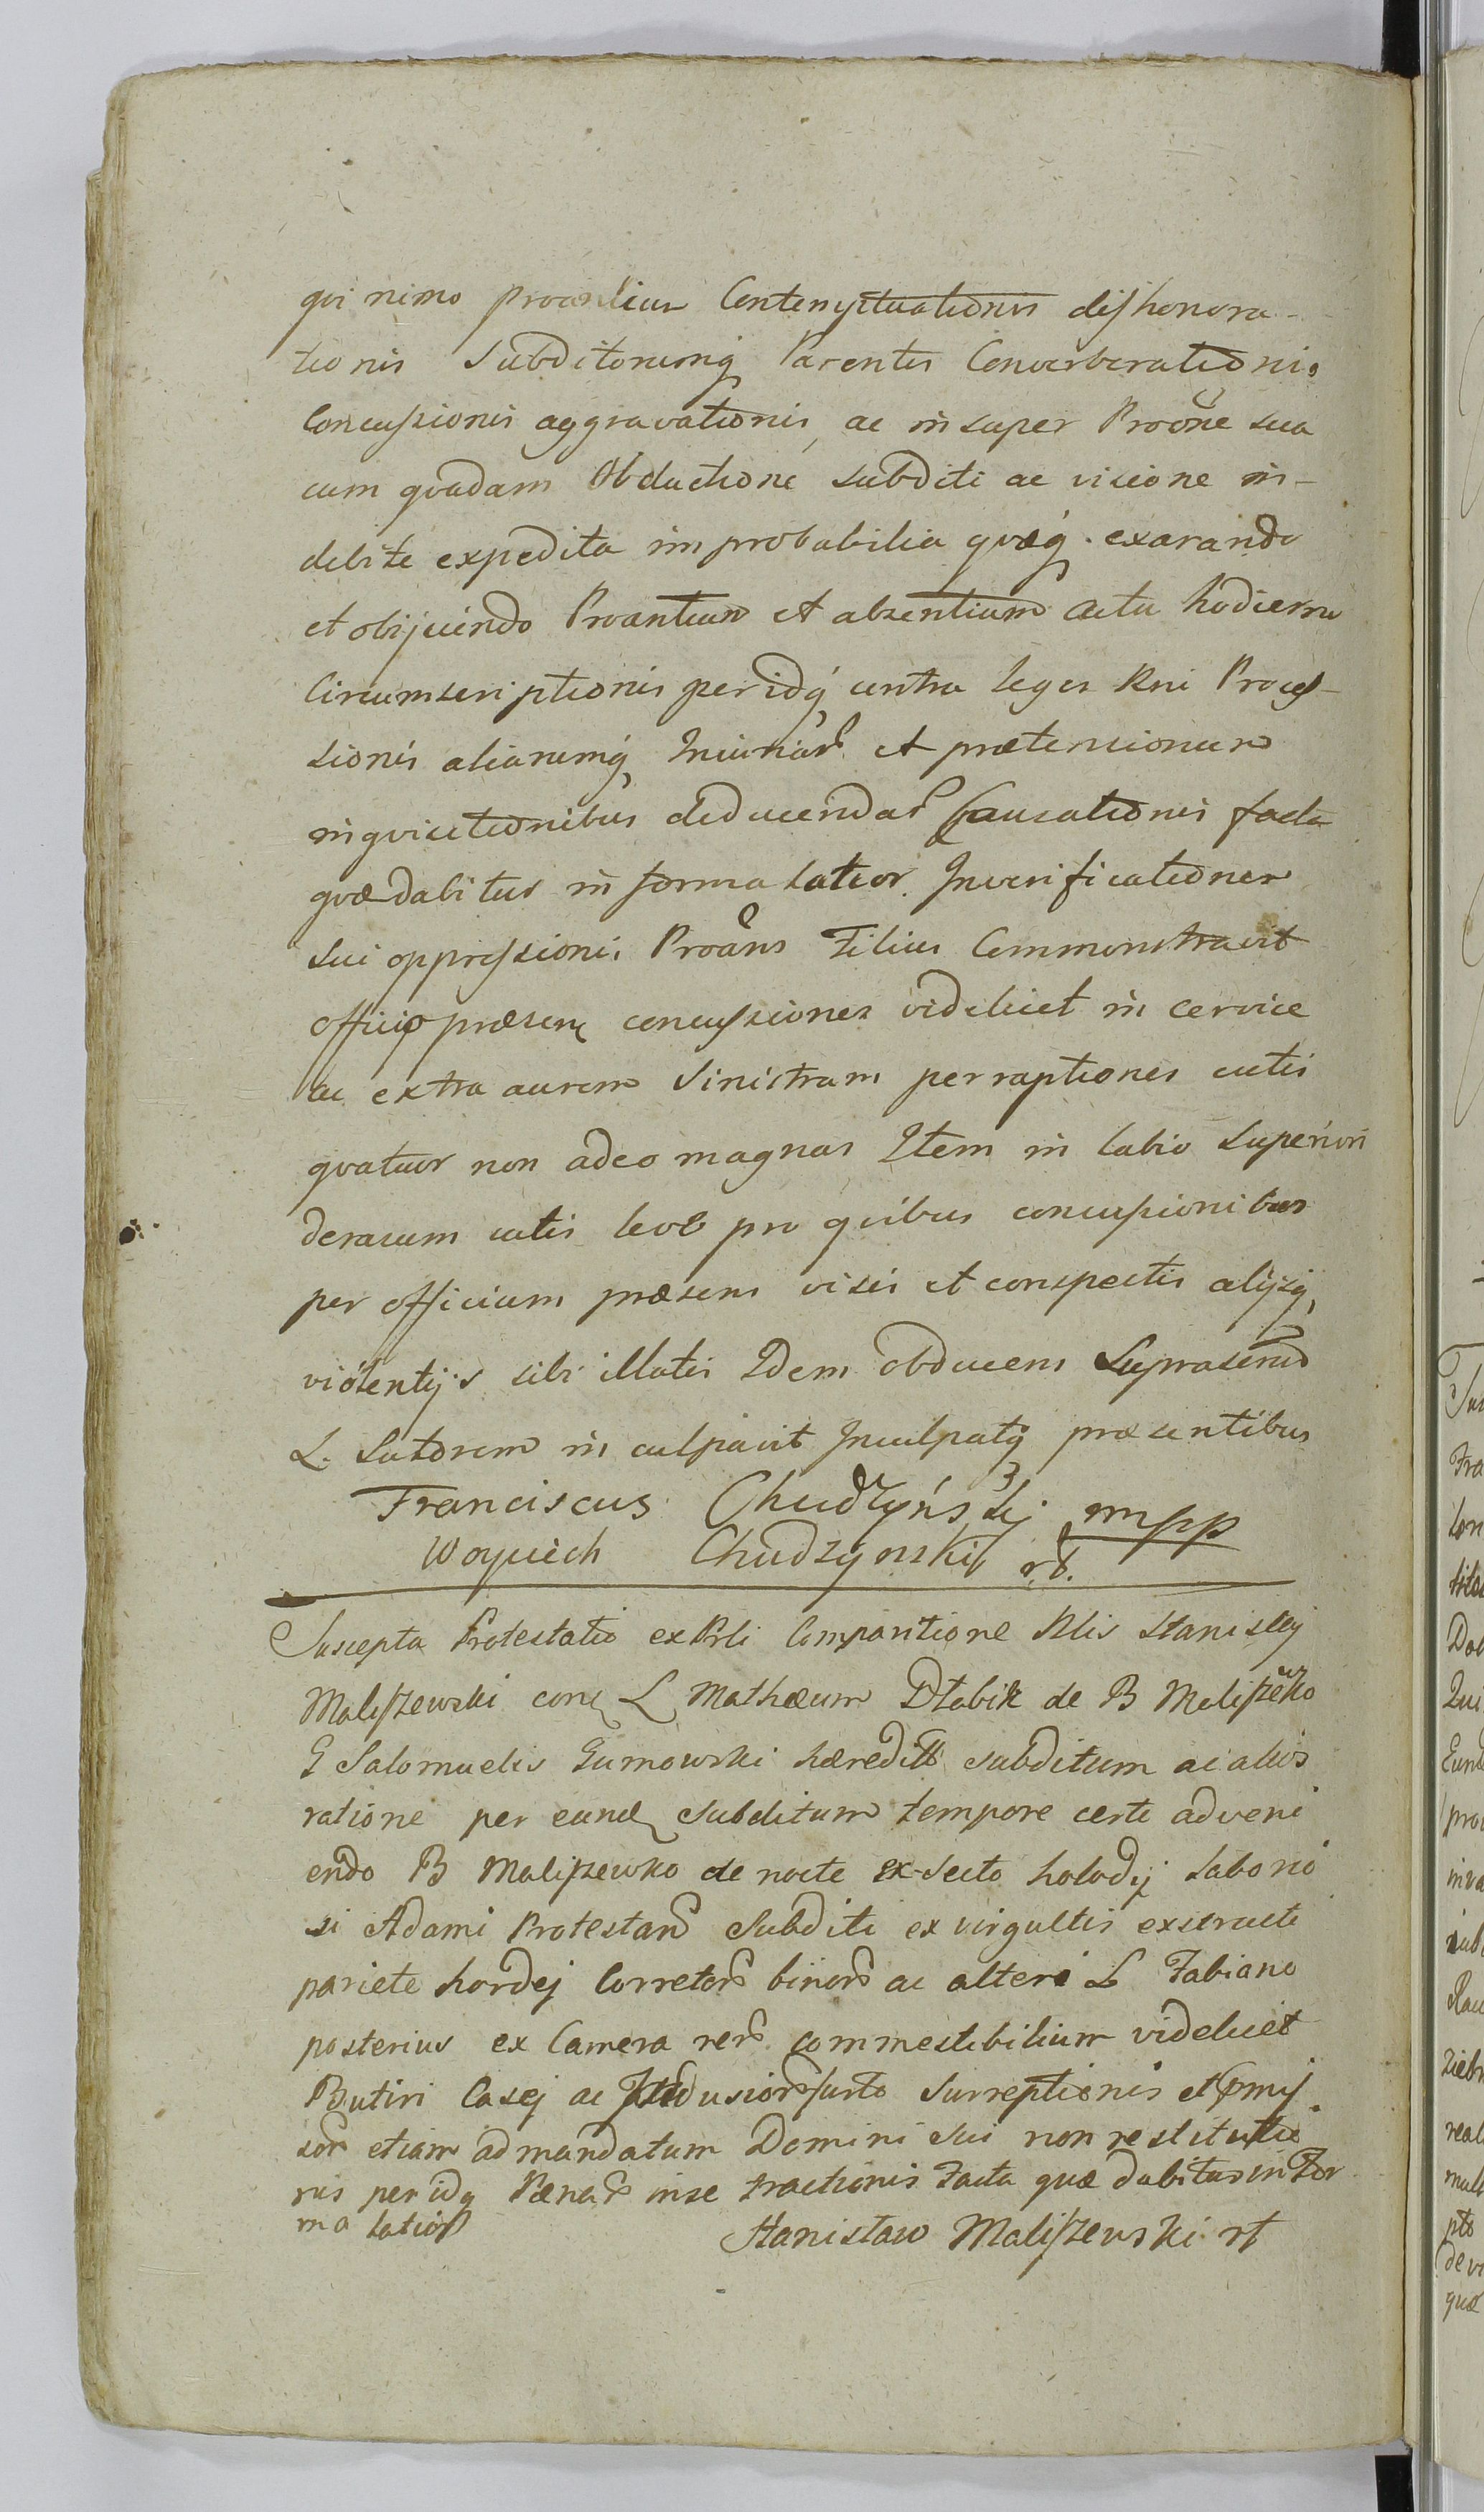 qvi nimo proantium Contemptuationis dishonora-
tionis Subditorumq Parentis Converberationis
Concussionis aggravationis, ac insuper Proone sua
cum qvadam Obductione subditi ac visione in-
debite expedita improbabilia qvæq. exarando
et obijciendo Proantium et absentium actu hodierno
Circumscriptionis per idq contra leges Rni Proces-
sionis aliarumq Iniuriar et prætensionum
inqvisitionibus deducendar Causationis facta
qvæ dabitur in forma latior. In verificationem
sui oppressionis Proans Filius Commonstravit
officio præsen concussiones videlicet in cervice
ac extra aurem Sinistram perraptiones cutis
qvatuor non adeo magnas Item in labio Superiori
derasum cutis leve pro qvibus concussionibus
per officium præsens visis et conspectis alijsq
violentijs sibi illatis Idem obducens Suprascrip
L. Sutorem inculpavit Inculpatq præsentibus
Franciscus Chudzyński mpp
Woyciech Chudzynski
Suscepta Protestatio ex Prli Comparitione Nlis Stanislaj
Maliszewski con L Mathæum Dłabik de B Maliszewko
G Salomuelis Gumowski hæredit subditum ac alios
ratione per eund Subditum tempore certo adveni
endo B Maliszewko de nocte ex Secto holody laborio
si Adami Protestan Subditi ex virgultis exstructi
pariete hordej Corretor binor ac altero L Fabiano
posterius ex Camera rer commestibilium videlicet
Butiri Casej ac furto Surreptionis et
etiam ad mandatum Domini sui non restitutio
nis per idq Pænar in se tractionis Facta quæ dabitur in For
ma latior Stanisław Maliszewski